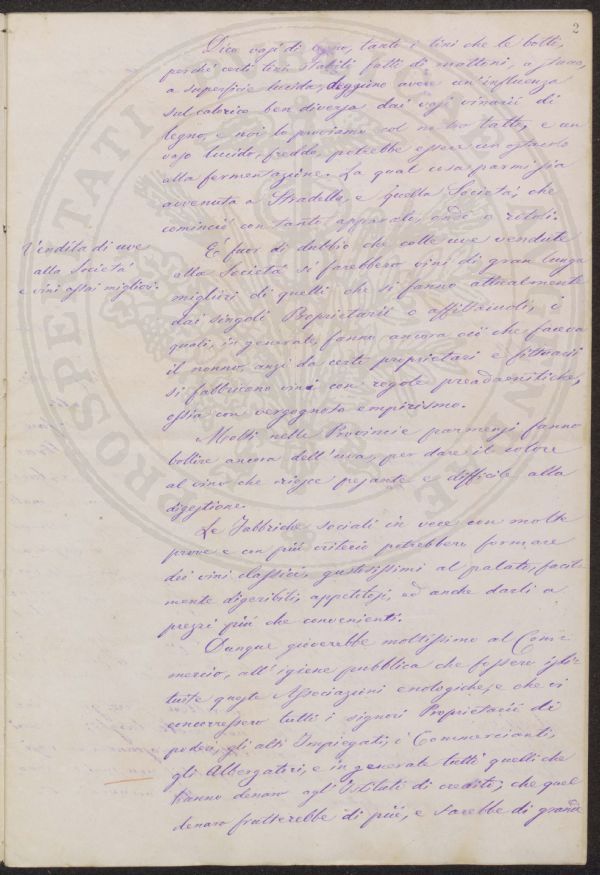 2
Dico vasi di legno, tanto i tini che le botti,
perché certi tini stabili fatti di mattoni, o sasso,
a superficie lucida, deggiono avere un'influenza
sul calorico ben diversa dai vasi vinarii di
legno, e noi lo proviamo col nostro tatto, e un
vaso lucido, freddo, potrebbe essere un ostacolo
alla fermentazione. La qual cosa parmi sia
avvenuta a Stradella, e quella Società, che
cominciò con tanto apparato, andò a rotoli.
Vendita di uve
alla Società
e vini assai migliori.
È fuor di dubbio che colle uve vendute
alla Società si farebbero vini di gran lunga
migliori di quelli che si fanno attualmente
dai singoli Proprietarii o affittuarii, i
quali, in generale, fanno ancora ciò che faceva
il nonno, anzi da certi proprietari e fittuarii
si fabbricono vini con regole preadamitiche,
ossia con vergognoso empirismo.
Molti nelle Provincie parmensi fanno
bollire ancora dell'uva, per dare il colore
al vino che riesce pesante e difficile alla
digestione.
Le Fabbriche sociali in vece con molte
prove e con più criterio potrebbero formare
dei vini classici, gustosissimi al palato, facil-
mente digeribili, appetitosi, ed anche darli a
prezzi più che convenienti.
Dunque gioverebbe moltissimo al Com-
mercio, all'igiene pubblica che fossero isti-
tuite queste Associazioni enologiche, e che vi
concorressero tutti i signori Proprietarii di
poderi, gli alti Impiegati, i Commercianti,
gli Albergatori, e in generale tutti quelli che
hanno denaro agl'Istituti di credito, che quel
denaro frutterebbe di più, e sarebbe di grande